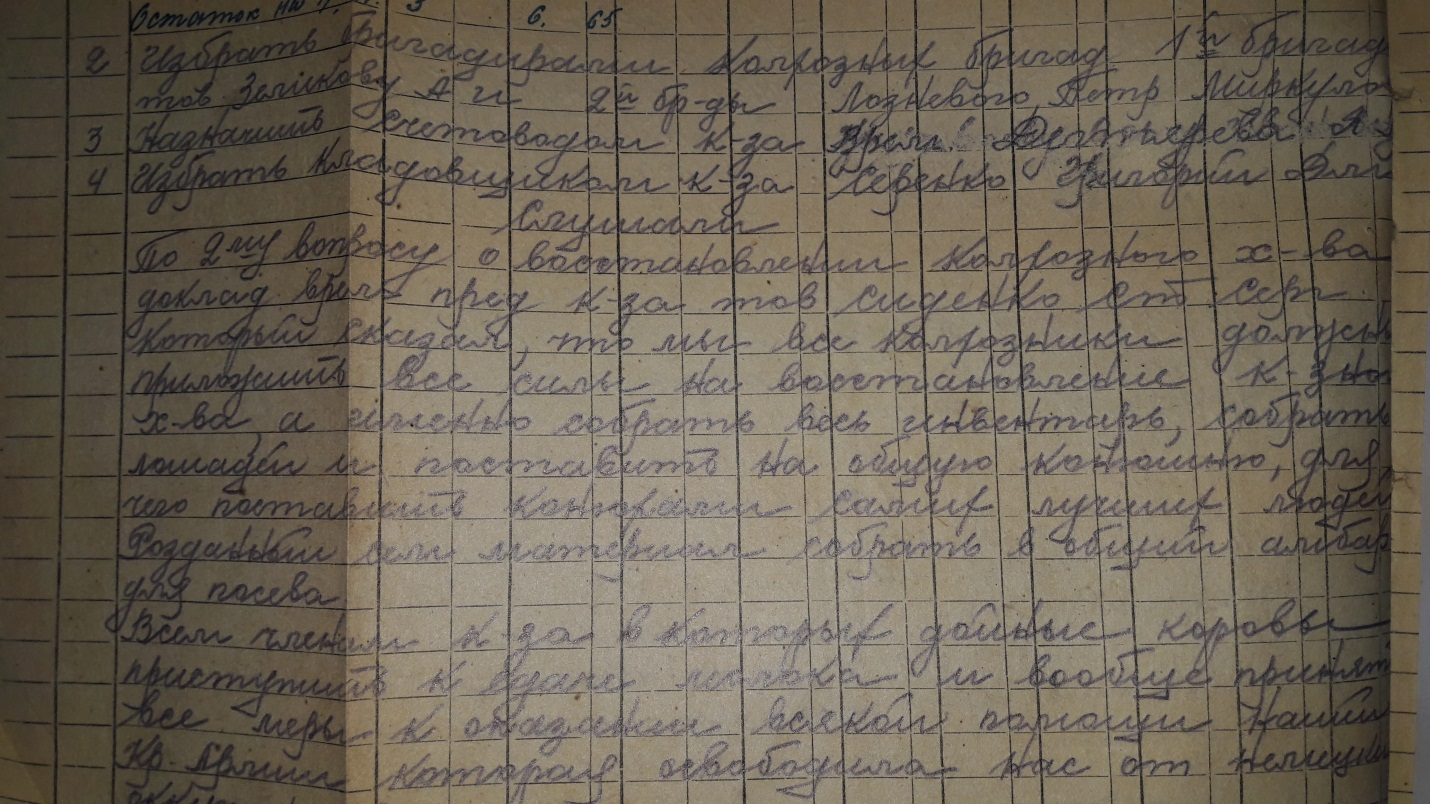 Остаток на 3 6. 65
2 Избрать бригадирами колхозных бригад 1й бригад
тов Зенькову А и 2й бр-ды Лозневого Петр Миркула
3 Назначить счетоводом к-за врем. Дехтерева А
4 Избрать кладовщиком к-за Серенко Григорий
Слушали
По 2му вопросу о восстановлении колхозного х-ва
доклад врем пред к-за тов Сиденко Ст. Серг
который сказал, что мы все колхозники должны
приложить все силы на восстановление к-зно
х-ва, а именно собрать весь инвентарь, собрать
лошадей и поставить на общую конюшню, для
чего поставить конюхами самих лучших людей
Розданный сем материал собрать в общий амбар
для посева
Всем членам к-за в которых дойные коровы
приступить к сдаче молока и вообще принят
все меры к оказании всякой помощи нашим
Кр. Армии которая освободила нас от немецки